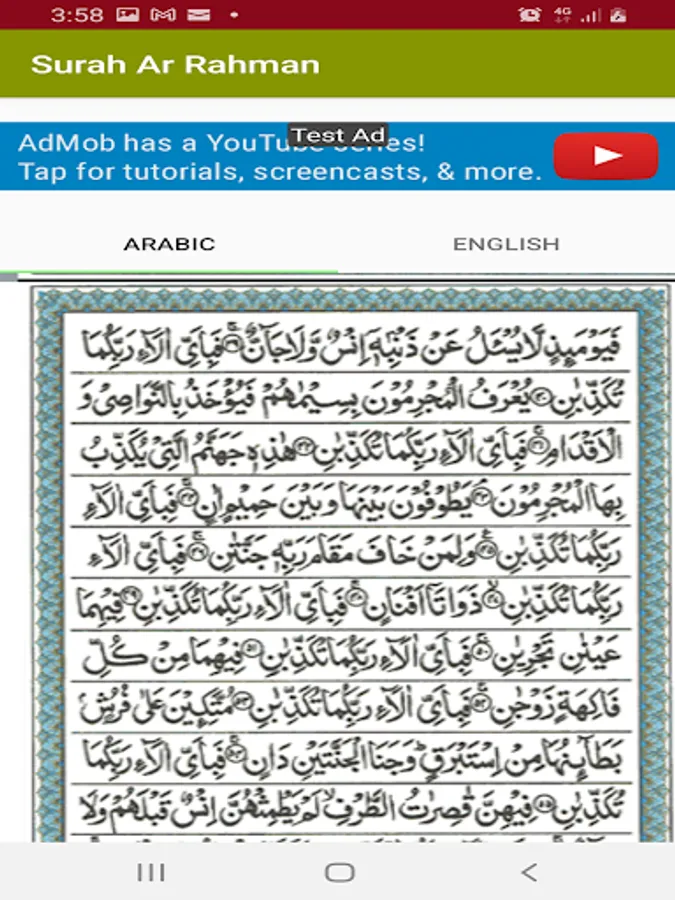 3:58
4G
Surah Ar Rahman
Test Ad
AdMob has a YouTube series!
Tap for tutorials, screencasts, & more.
ARABIC
ENGLISH
فَيَوْمَئِذٍ لَّا يُسْـَٔلُ عَنْ ذَنْۢبِهٖٓ اِنْسٌ وَّلَا جَآنٌّ ۝٣٩ فَبِاَيِّ اٰلَآءِ رَبِّكُمَا
تُكَذِّبٰنِ ۝٤٠ يُعْرَفُ الْمُجْرِمُوْنَ بِسِيْمٰهُمْ فَيُؤْخَذُ بِالنَّوَاصِيْ وَ
الْاَقْدَامِ ۝٤١ فَبِاَيِّ اٰلَآءِ رَبِّكُمَا تُكَذِّبٰنِ ۝٤٢ هٰذِهٖ جَهَنَّمُ الَّتِيْ يُكَذِّبُ
بِهَا الْمُجْرِمُوْنَ ۝٤٣ يَطُوْفُوْنَ بَيْنَهَا وَبَيْنَ حَمِيْمٍ اٰنٍ ۝٤٤ فَبِاَيِّ اٰلَآءِ
رَبِّكُمَا تُكَذِّبٰنِ ۝٤٥ وَلِمَنْ خَافَ مَقَامَ رَبِّهٖ جَنَّتٰنِ ۝٤٦ فَبِاَيِّ اٰلَآءِ
رَبِّكُمَا تُكَذِّبٰنِ ۝٤٧ ذَوَاتَآ اَفْنَانٍ ۝٤٨ فَبِاَيِّ اٰلَآءِ رَبِّكُمَا تُكَذِّبٰنِ ۝٤٩ فِيْهِمَا
عَيْنٰنِ تَجْرِيٰنِ ۝٥٠ فَبِاَيِّ اٰلَآءِ رَبِّكُمَا تُكَذِّبٰنِ ۝٥١ فِيْهِمَا مِنْ كُلِّ
فَاكِهَةٍ زَوْجٰنِ ۝٥٢ فَبِاَيِّ اٰلَآءِ رَبِّكُمَا تُكَذِّبٰنِ ۝٥٣ مُتَّكِـِٕيْنَ عَلٰى فُرُشٍۢ
بَطَآئِنُهَا مِنْ اِسْتَبْرَقٍ ؕ وَجَنَا الْجَنَّتَيْنِ دَانٍ ۝٥٤ فَبِاَيِّ اٰلَآءِ رَبِّكُمَا
تُكَذِّبٰنِ ۝٥٥ فِيْهِنَّ قٰصِرٰتُ الطَّرْفِ ۙ لَمْ يَطْمِثْهُنَّ اِنْسٌ قَبْلَهُمْ وَلَا